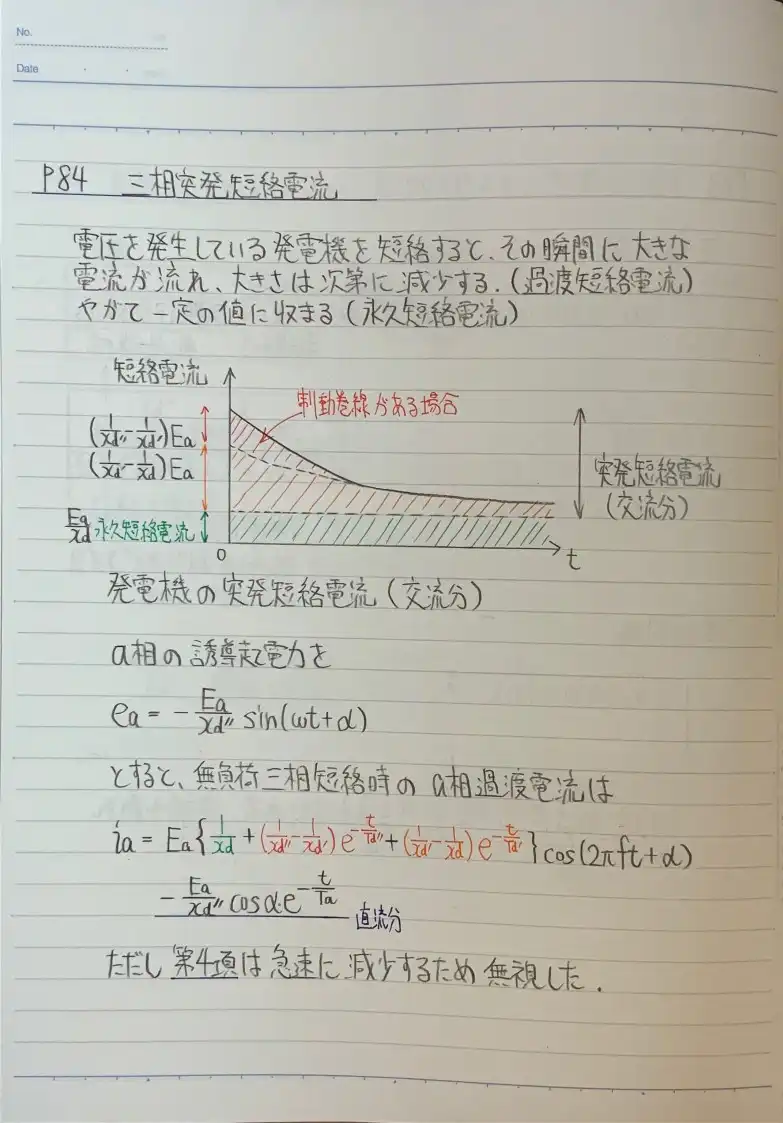 No.
Date
P84 三相突発短絡電流
電圧を発生している発電機を短絡すると、その瞬間に大きな
電流が流れ、大きさは次第に減少する.(過渡短絡電流)
やがて一定の値に収まる(永久短絡電流)
短絡電流
制動巻線がある場合
(1/xd″-1/xd′)Ea
(1/xd′-1/xd)Ea
突発短絡電流
(交流分)
Ea/xd 永久短絡電流
0
t
発電機の突発短絡電流(交流分)
a相の誘導起電力を
ea = -Ea/xd″ sin(ωt+α)
とすると、無負荷三相短絡時のa相過渡電流は
ia = Ea{1/xd+(1/xd″-1/xd′)e^-t/Td″+(1/xd′-1/xd)e^-t/Td′}cos(2πft+α)
-Ea/xd″ cosα・e^-t/Ta 直流分
ただし第4項は急速に減少するため無視した.